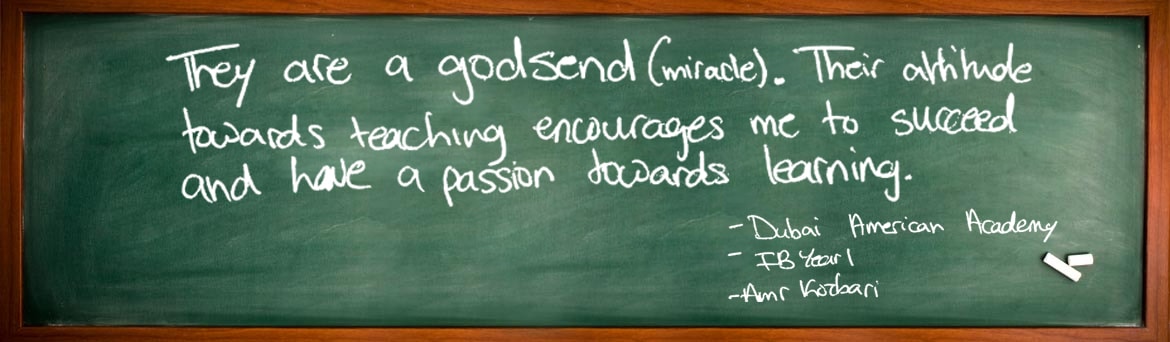 They are a godsend (miracle). Their attitude
towards teaching encourages me to succeed
and have a passion towards learning.
- Dubai American Academy
- IB Year 1
- Amr Kozbari